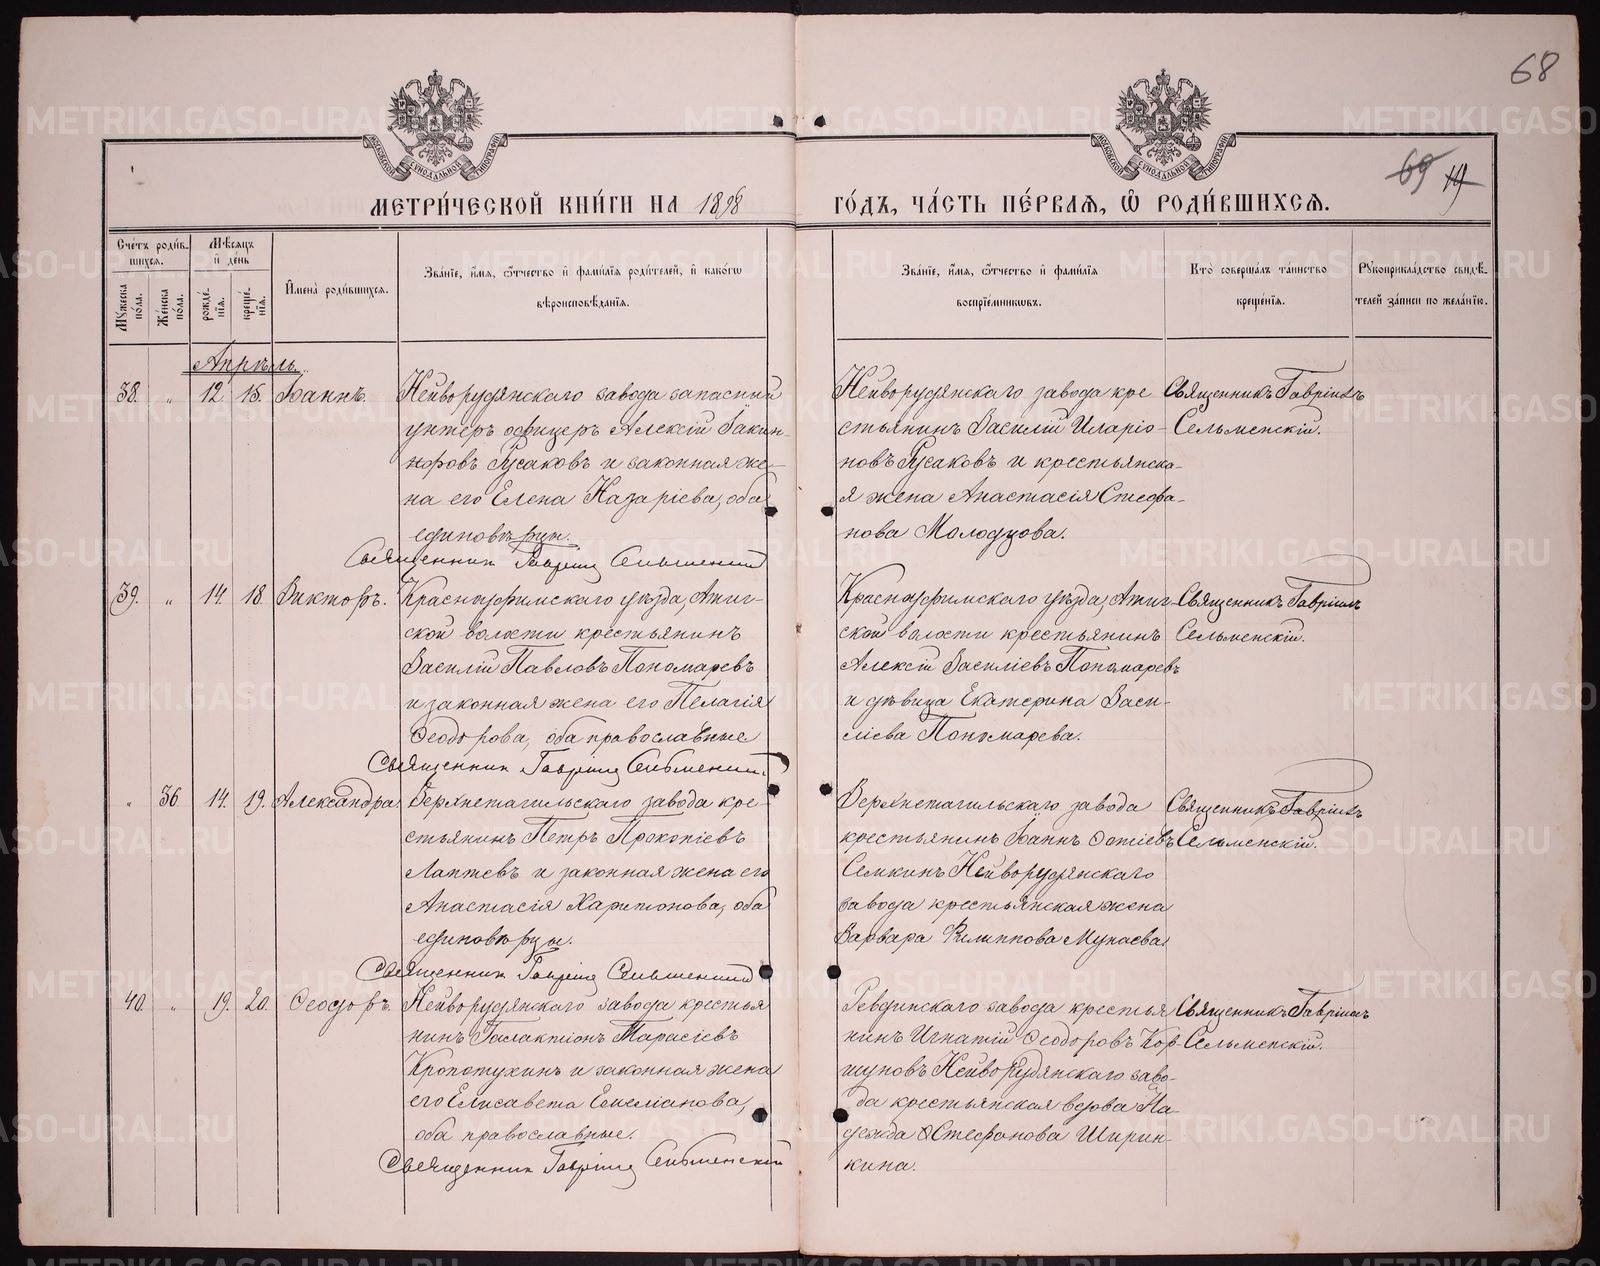 68
69 19
МОСКОВСКОЙ СѴНОДАЛЬНОЙ ТИПОГРАФІИ
МОСКОВСКОЙ СѴНОДАЛЬНОЙ ТИПОГРАФІИ
МЕТРИ́ЧЕСКОЙ КНИ́ГИ НА 1898 ГО́ДЪ, ЧА́СТЬ ПЕ́РВАѦ, Ѡ РОДИ́ВШИХСѦ.
Сче́тъ роди́в-
шихсѧ.
Мѣ́сѧцъ
и҆ де́нь
Мꙋ́жеска
по́ла.
Же́нска
по́ла.
рожде́-
нїѧ.
креще́-
нїѧ.
И҆мена̀ роди́вшихсѧ.
Зва́нїе, и҆́мѧ, ѻ҆́тчество и҆ фамѝлїѧ роди́телей, и҆ како́гѡ
вѣроисповѣ́данїѧ.
Зва́нїе, и҆́мѧ, ѻ҆́тчество и҆ фамѝлїѧ
воспрїе́мникѡвъ.
Кто̀ соверша́лъ та́инство
креще́нїѧ.
Рꙋкоприкла́дство свидѣ́-
телей за́писи по жела́нїю.
Апрѣль
38. " 12 15. Іоаннъ.
Нейворудянскаго завода запасный
унтеръ офицеръ Алексій Іакин-
ѳоровъ Русаковъ и законная же-
на его Елена Назаріева, оба
единовѣрцы.
Священник Гавріил Сельменский
Нейворудянскаго завода кре
стьянинъ Василій Иларіо-
новъ Русаковъ и крестьянска-
я жена Анастасія Стефа-
нова Молодцова.
Священникъ Гавріилъ
Сельменскій.
39. " 14. 18. Викторъ.
Красноуфимскаго уѣзда, Ачиг-
ской волости крестьянинъ
Василій Павловъ Пономаревъ
и законная жена его Пелагія
Ѳеодорова, оба православные
Священник Гавріил Сельменский.
Красноуфимскаго уѣзда, Ачиг-
ской волости крестьянинъ
Алексій Василіевъ Пономаревъ
и дѣвица Екатерина Васи-
ліева Пономарева.
Священникъ Гавріилъ
Сельменскій.
" 36. 14. 19. Александра
Верхнетагильскаго завода кре-
стьянинъ Петръ Прокопіевъ
Лаптевъ и законная жена его
Анастасія Харитонова, оба
единовѣрцы.
Священник Гавріил Сельменский
Верхнетагильскаго завода
крестьянинъ Іоаннъ Фотіевъ
Семкинъ Нейворудянскаго
завода крестьянская жена
Варвара Филиппова Мунаева.
Священникъ Гавріилъ
Сельменскій.
40. " 19. 20. Ѳеодоръ.
Нейворудянскаго завода крестья
нинъ Галактіонъ Тарасіевъ
Кропотухинъ и законная жена
его Елисавета Емеліанова,
оба православные.
Священник Гавріил Сельменский
Ревдинскаго завода крестья
нинъ Игнатій Ѳеодоровъ Кор-
шуновъ Нейворудянскаго заво-
да крестьянская вдова На-
дежда Стефанова Ширин-
кина.
Священникъ Гавріилъ
Сельменскій.
METRIKI.GASO-URAL.RU